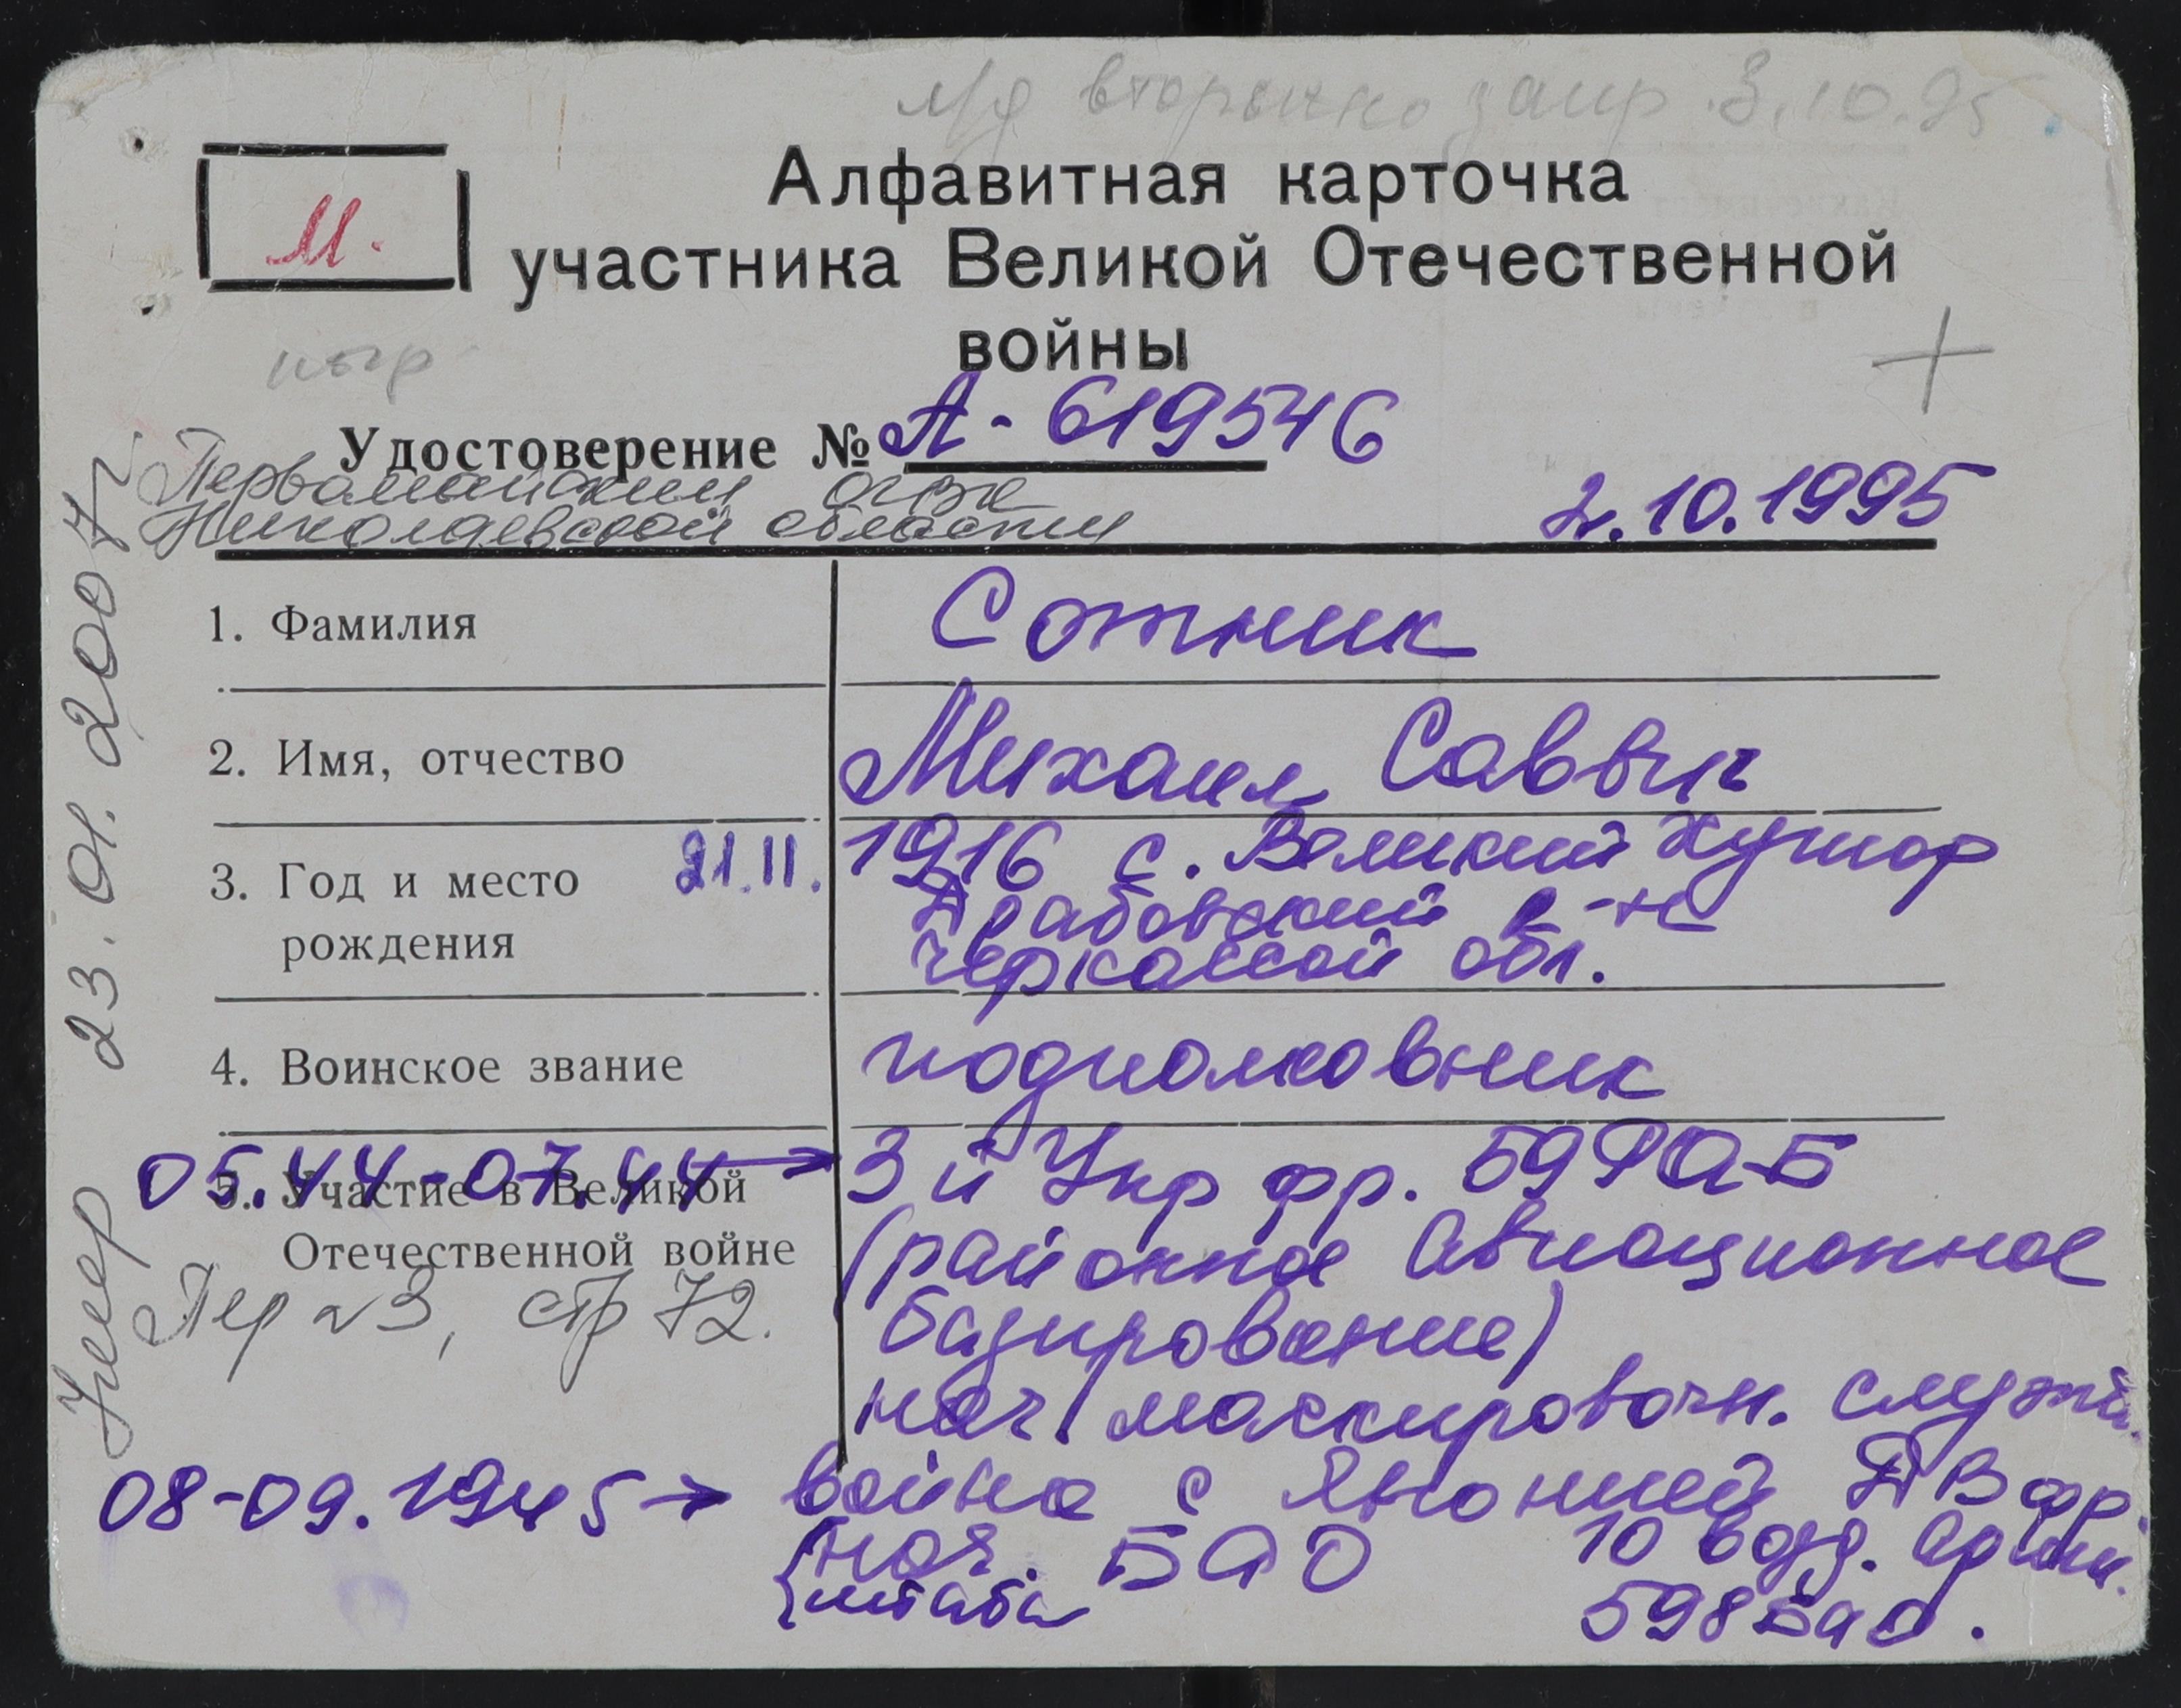 вторично запр. 3.10.95
Алфавитная карточка
М.
участника Великой Отечественной
войны
Удостоверение № А-619546
Первомайский ОГВК
Николаевской области
2.10.1995
1. Фамилия
Сотник
2. Имя, отчество
Михаил Саввич
3. Год и место
рождения
21.11.
1916 с. Великий Хутор
Драбовский р-н
Черкасской обл.
4. Воинское звание
подполковник
05.44-07.44 →
5. Участие в Великой
Отечественной войне
Пер №3, стр 72.
3й Укр фр. 59 РАБ
(районное авиационное
базирование)
нач маскировочн. служб.
08-09.1945 →
война с Японией ДВ фр.
{нач. БАО
штаба
10 возд. Арми.
598 БАО.
Умер 23.01.2007г